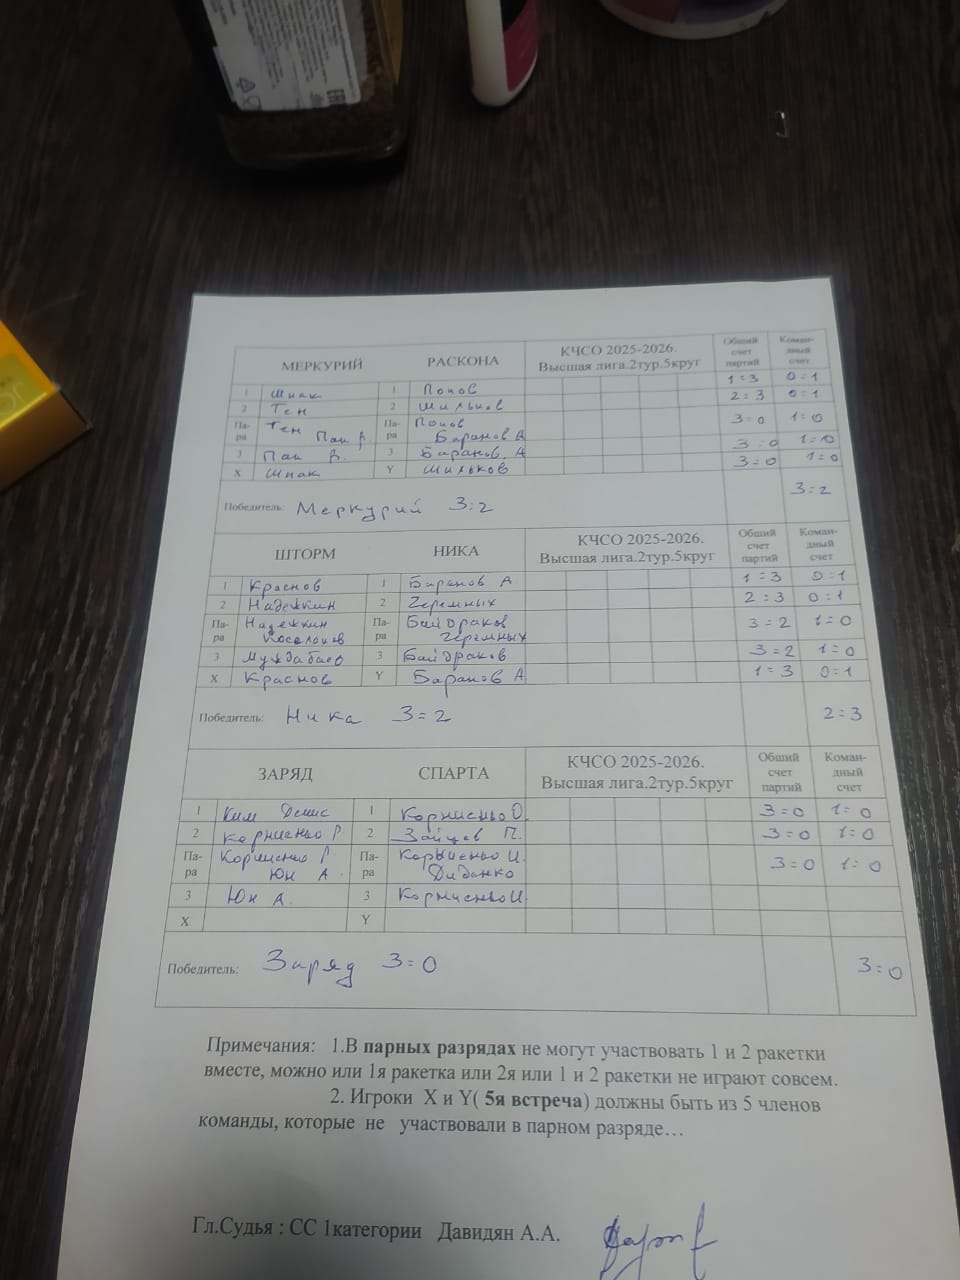 МЕРКУРИЙ РАСКОНА КЧСО 2025-2026. Общий счет партий Коман-дный счет
Высшая лига.2тур.5круг
1 Шпак 1 Попов 1:3 0:1
2 Тен 2 Шильков 2:3 0:1
Па-ра Тен Пак В. Па-ра Попов Баранов А 3:0 1:0
3 Пак В. 3 Баранов. А 3:0 1:0
X Шпак Y Шильков 3:0 1:0
3:2
Победитель: Меркурий 3:2
ШТОРМ НИКА КЧСО 2025-2026. Общий счет партий Коман-дный счет
Высшая лига.2тур.5круг
1 Краснов 1 Баранов А 1:3 0:1
2 Надежкин 2 Черемных 2:3 0:1
Па-ра Надежкин Па-ра Байдраков Черемных 3=2 1=0
3 Муждабаев 3 Байдраков 3=2 1=0
X Краснов Y Баранов А 1=3 0=1
Победитель: Ника 3=2 2=3
ЗАРЯД СПАРТА КЧСО 2025-2026. Общий счет партий Коман-дный счет
Высшая лига.2тур.5круг
1 Ким Денис 1 Корниенко О. 3=0 1=0
2 Корниенко Р. 2 Зайцев П. 3=0 1=0
Па-ра Корниенко Р Юн А. Па-ра Корниенко И. 3=0 1=0
3 Юн А. 3 Корниенко И.
X Y
Победитель: Заряд 3=0 3=0
Примечания: 1.В парных разрядах не могут участвовать 1 и 2 ракетки
вместе, можно или 1я ракетка или 2я или 1 и 2 ракетки не играют совсем.
2. Игроки X и Y( 5я встреча) должны быть из 5 членов
команды, которые не участвовали в парном разряде…
Гл.Судья : СС 1категории Давидян А.А.